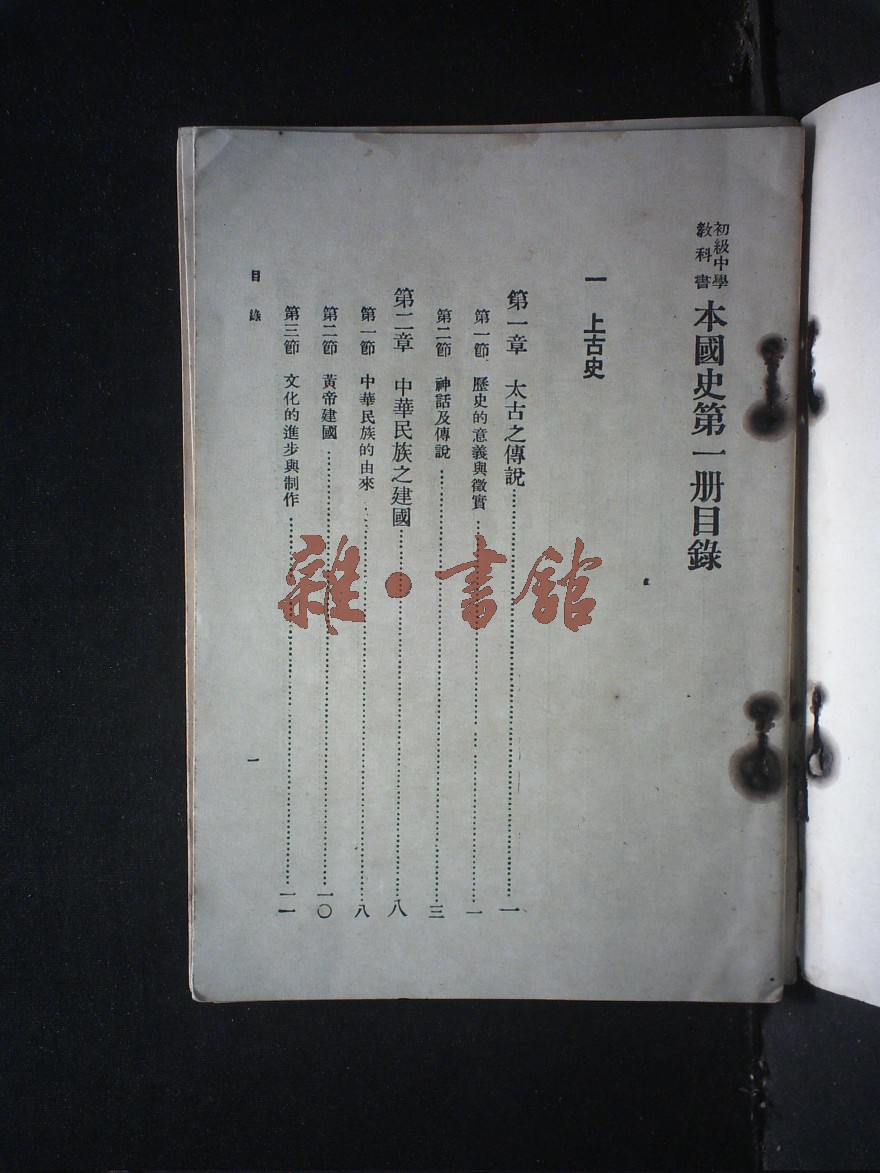 初級中學
教科書
本國史第一册目錄
一 上古史
第一章 太古之傳說……一
第一節 歷史的意義與徵實……一
第二節 神話及傳說……三
第二章 中華民族之建國……八
第一節 中華民族的由來……八
第二節 黃帝建國……一〇
第三節 文化的進步與制作……一一
目錄
一
雜·書館